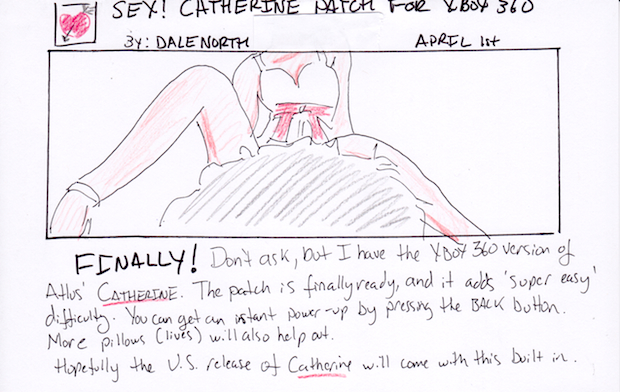 SEX! CATHERINE PATCH FOR XBOX 360
BY: DALE NORTH APRIL 1st
FINALLY! Don't ask, but I have the XBOX 360 version of
Atlus' CATHERINE. The patch is finally ready, and it adds 'super easy'
difficulty. You can get an instant power-up by pressing the BACK button.
More pillows (lives) will also help out.
Hopefully the U.S. release of Catherine will come with this built in.